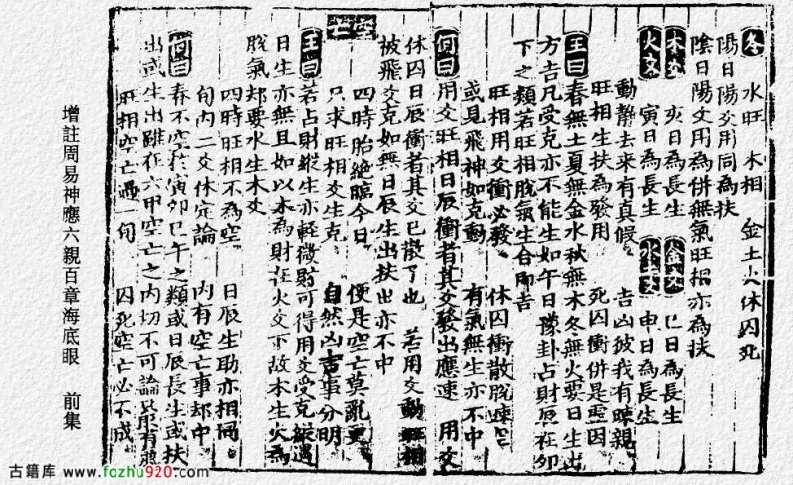 冬 水旺 木相 金土火休囚死
陽日陽爻用同為扶
陰日陽爻用為併無氣旺相亦為扶
木爻 亥日為長生 金爻 巳日為長生
火爻 寅日為長生 水土爻 申日為長生
動靜去來有真假 吉凶彼我有疎親
旺相生扶為發用 死囚衝併是因
王曰春無土夏無金水秋無木冬無火要日生出
方吉凡受克亦不能生如午日豫卦占財在卯
下之類若旺相脫氣生合即吉
旺相用爻衝必發 休囚衝散脫速
或見飛神如克動 有氣無生亦不中
何曰用爻旺相日辰衝者其爻發出應速 用爻
休囚日辰衝者其爻已散了也 若用爻動旺相
被飛爻克如無日辰生出扶出亦不中
空亡
四時胎絶臨今日 便是空亡莫亂
只求旺相爻生克 自然凶吉事分明
王曰若占財縱生亦輕微財可得用爻受克縱遇
日生亦無且如以木為財在火爻下故木生火為
脫氣却要水生木爻
四時旺相不為空 日辰生助亦相同
旬內二爻休定論 內有空亡事却中
何曰春不空於寅卯巳午之類或日辰長生或扶
出或生出雖在六甲空亡之內切不可論最有
旺相空亡過一旬 囚死空亡必不成
增註周易神應六親百章海底眼 前集
古籍库 www.fozhu920.com